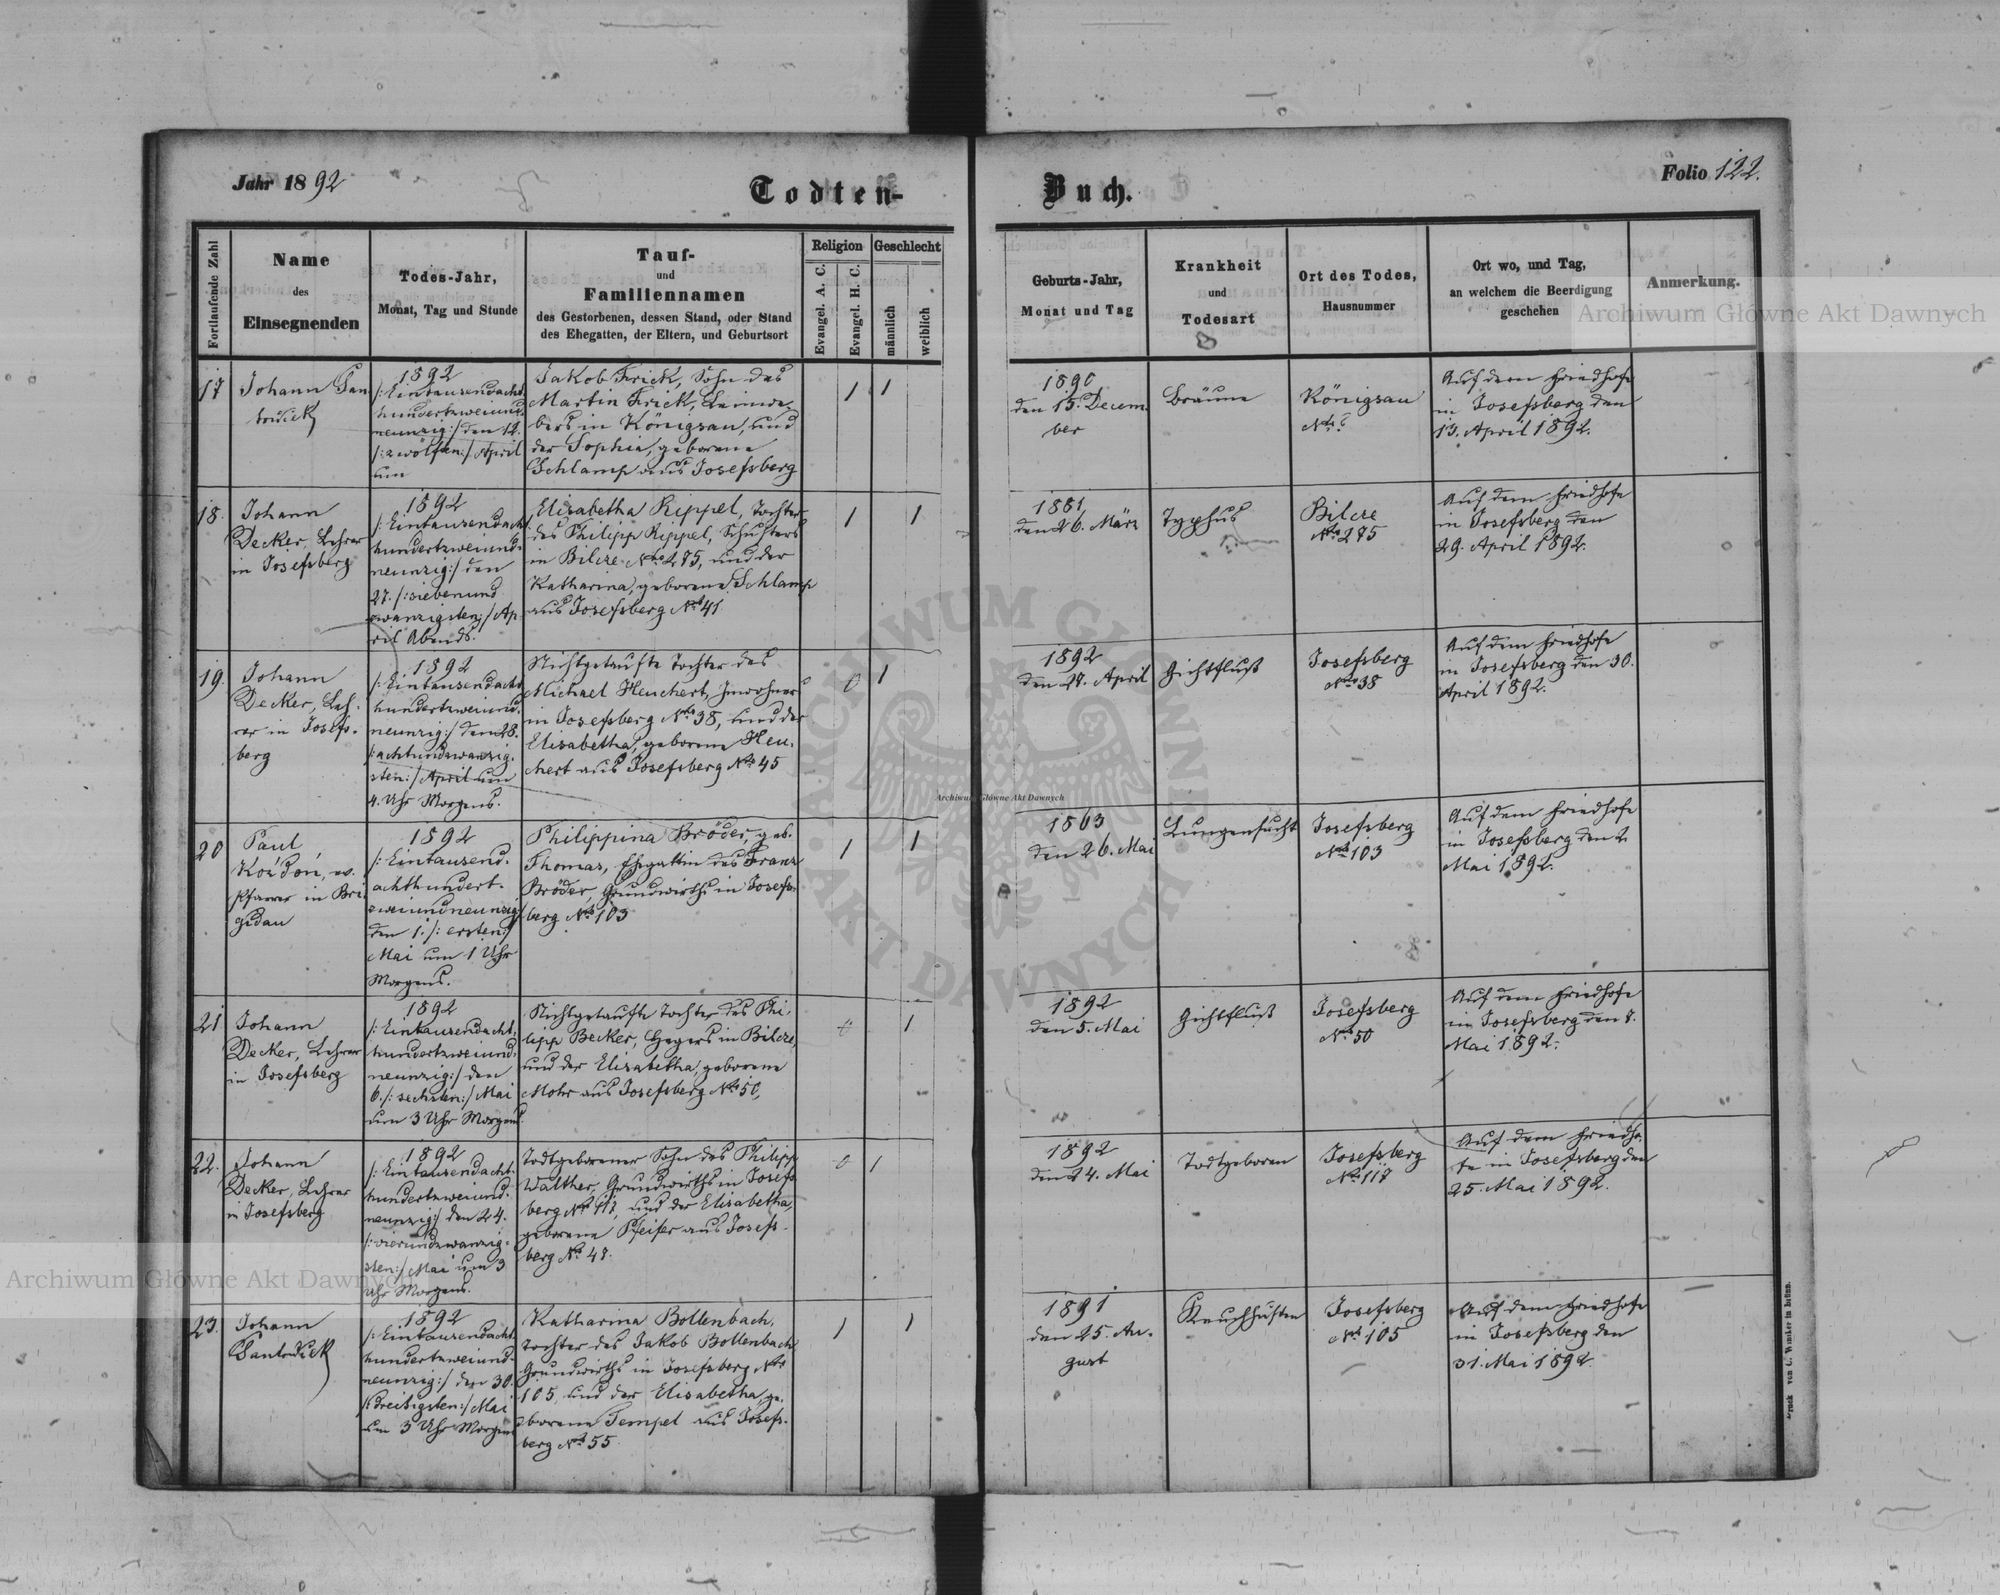 Jahr 1892
Todten-
Buch.
Folio 122.
Fortlaufende Zahl
Name
des
Einsegnenden
Todes-Jahr,
Monat, Tag und Stunde
Tauf-
und
Familiennamen
des Gestorbenen, dessen Stand, oder Stand
des Ehegatten, der Eltern, und Geburtsort
Religion
Evangel. A. C.
Evangel. H. C.
Geschlecht
männlich
weiblich
Geburts-Jahr,
Monat und Tag
Krankheit
und
Todesart
Ort des Todes,
Hausnummer
Ort wo, und Tag,
an welchem die Beerdigung
geschehen
Anmerkung.
17
Johann
1892
/: Eintausendacht-
hundertzweiund-
neunzig :/ den 12.
/: zwölften :/ April
um
Jakob Frick, Sohn des
Martin Frick, Leinwe-
bers in Königsau, und
der Sophia, geborene
Schlamp aus Josefsberg
1
1
1890
den 15. Decem-
ber
Bräune
Königsau
Nro 6
Auf dem Friedhofe
in Josefsberg den
13. April 1892.
18.
Johann
Decker, Lehrer
in Josefsberg
1892
/: Eintausendacht-
hundertzweiund-
neunzig :/ den
27. /: siebenund
zwanzigsten :/ Ap-
ril Abends.
Elisabetha Rippel, Tochter
des Philipp Rippel, Schusters
in Bilcze Nro 275, und der
Katharina, geborene Schlamp
aus Josefsberg Nro 41
1
1
1881
den 26. März
Typhus
Bilcze
Nro 275
Auf dem Friedhofe
in Josefsberg den
29. April 1892.
19.
Johann
Decker, Leh-
rer in Josefs-
berg
1892
/: Eintausendacht-
hundertzweiund-
neunzig :/ den 28.
/: achtundzwanzig-
sten :/ April um
4. Uhr Morgens.
Nichtgetaufte Tochter des
Michael Heuchert, Inwohners
in Josefsberg Nro 38, und der
Elisabetha, geborene Heu-
chert aus Josefsberg Nro 45
0
1
1892
den 27. April
Gichtfluß
Josefsberg
Nro 38
Auf dem Friedhofe
in Josefsberg den 30.
April 1892.
20
Paul
ev.
Pfarrer in Bri-
gidau
1892
/: Eintausend-
achthundert-
zweiundneunzig
den 1. /: ersten :/
Mai um 1 Uhr
Morgens.
Philippina Bröder, geb.
Thomas, Ehegattin des Franz
Bröder, Grundwirths in Josefs-
berg Nro 103
1
1
1863
den 26. Mai
Lungensucht
Josefsberg
Nro 103
Auf dem Friedhofe
in Josefsberg den 2
Mai 1892.
21
Johann
Decker, Lehrer
in Josefsberg
1892
/: Eintausendacht-
hundertzweiund-
neunzig :/ den
6. /: sechsten :/ Mai
um 3 Uhr Morgens.
Nichtgetaufte Tochter des Phi-
lipp Becker, Hegers in Bilcze,
und der Elisabetha, geborene
Mohr aus Josefsberg Nro 50,
0
1
1892
den 5. Mai
Gichtfluß
Josefsberg
Nro 50
Auf dem Friedhofe
in Josefsberg den 7.
Mai 1892.
22.
Johann
Decker, Lehrer
in Josefsberg
1892
/: Eintausendacht-
hundertzweiund-
neunzig :/ den 24.
/: vierundzwanzig-
sten :/ Mai um 3
Uhr Morgens.
Todtgeborener Sohn des Philipp
Walther, Grundwirths in Josefs-
berg Nro 117, und der Elisabetha,
geborene Pfeifer aus Josefs-
berg Nro 48.
0
1
1892
den 24. Mai
Todtgeboren
Josefsberg
Nro 117
Auf dem Friedho-
fe in Josefsberg den
25. Mai 1892.
23.
Johann
1892
/: Eintausendacht-
hundertzweiund-
neunzig :/ den 30.
/: dreißigsten :/ Mai
um 3 Uhr Morgens
Katharina Bollenbach,
Tochter des Jakob Bollenbach
Grundwirths in Josefsberg Nro
105, und der Elisabetha, ge-
borene Tempel aus Josefs-
berg Nro 55
1
1
1891
den 25. Au-
gust
Keuchhusten
Josefsberg
Nro 105
Auf dem Friedhofe
in Josefsberg den
31. Mai 1892.
Archiwum Główne Akt Dawnych
Archiwum Główne Akt Dawnych
Archiwum Główne Akt Dawnych
ARCHIWUM GŁÓWNE
AKT DAWNYCH